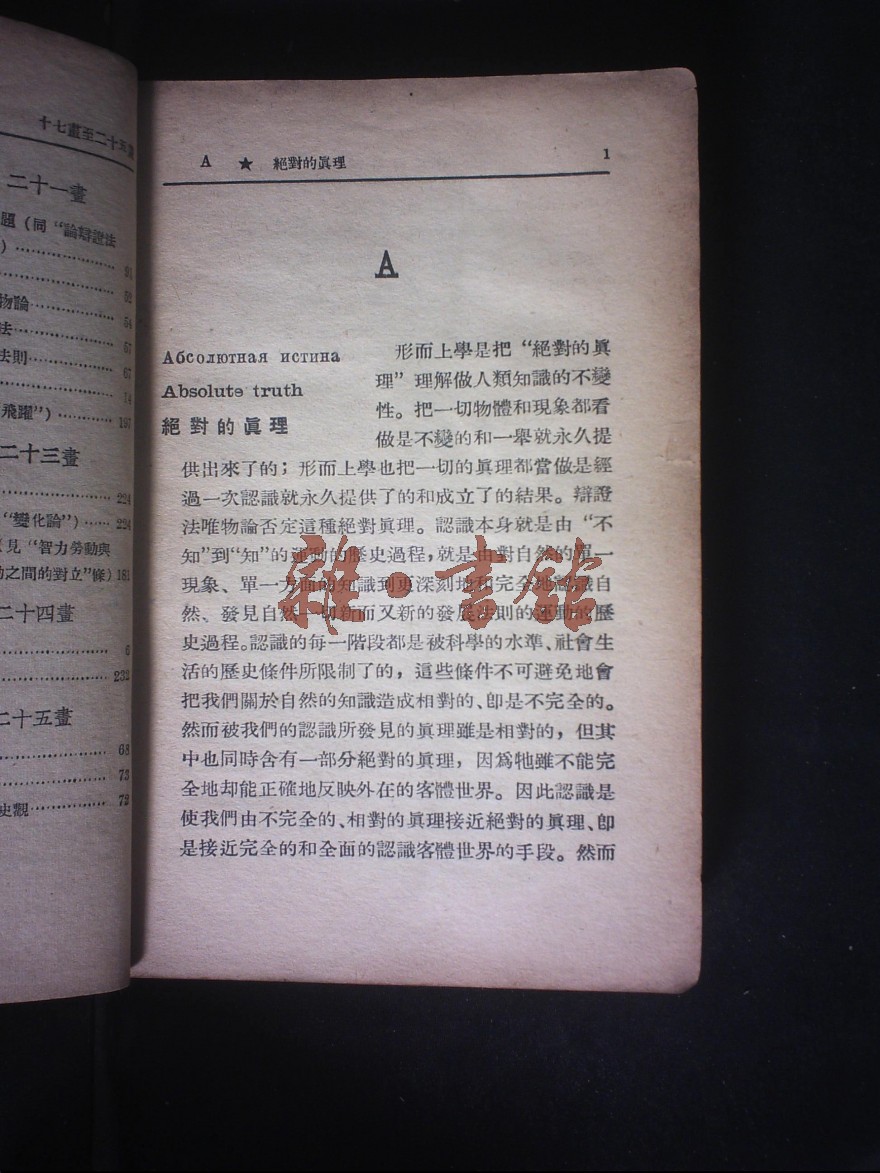 十七畫至二十五畫
二十一畫
題（同“論辯證法
）
91
52
物論 54
法 57
法則 67
74
飛躍”） 197
二十三畫
224
“變化論”） 224
見“智力勞動與
之間的對立”條） 181
二十四畫
6
232
二十五畫
68
73
史觀 72
A ★ 絕對的眞理 1
A
Абсолютная истина
Absolute truth
絕對的眞理
形而上學是把“絕對的眞
理”理解做人類知識的不變
性。把一切物體和現象都看
做是不變的和一舉就永久提
供出來了的；形而上學也把一切的眞理都當做是經
過一次認識就永久提供了的和成立了的結果。辯證
法唯物論否定這種絕對眞理。認識本身就是由“不
知”到“知”的運動的歷史過程，就是由對自然的單一
現象、單一方面的知識到更深刻地和完全地認識自
然、發見自然一切新而又新的發展法則的運動的歷
史過程。認識的每一階段都是被科學的水準、社會生
活的歷史條件所限制了的，這些條件不可避免地會
把我們關於自然的知識造成相對的、卽是不完全的。
然而被我們的認識所發見的眞理雖是相對的，但其
中也同時含有一部分絕對的眞理，因爲牠雖不能完
全地却能正確地反映外在的客體世界。因此認識是
使我們由不完全的、相對的眞理接近絕對的眞理、卽
是接近完全的和全面的認識客體世界的手段。然而
雜·書館